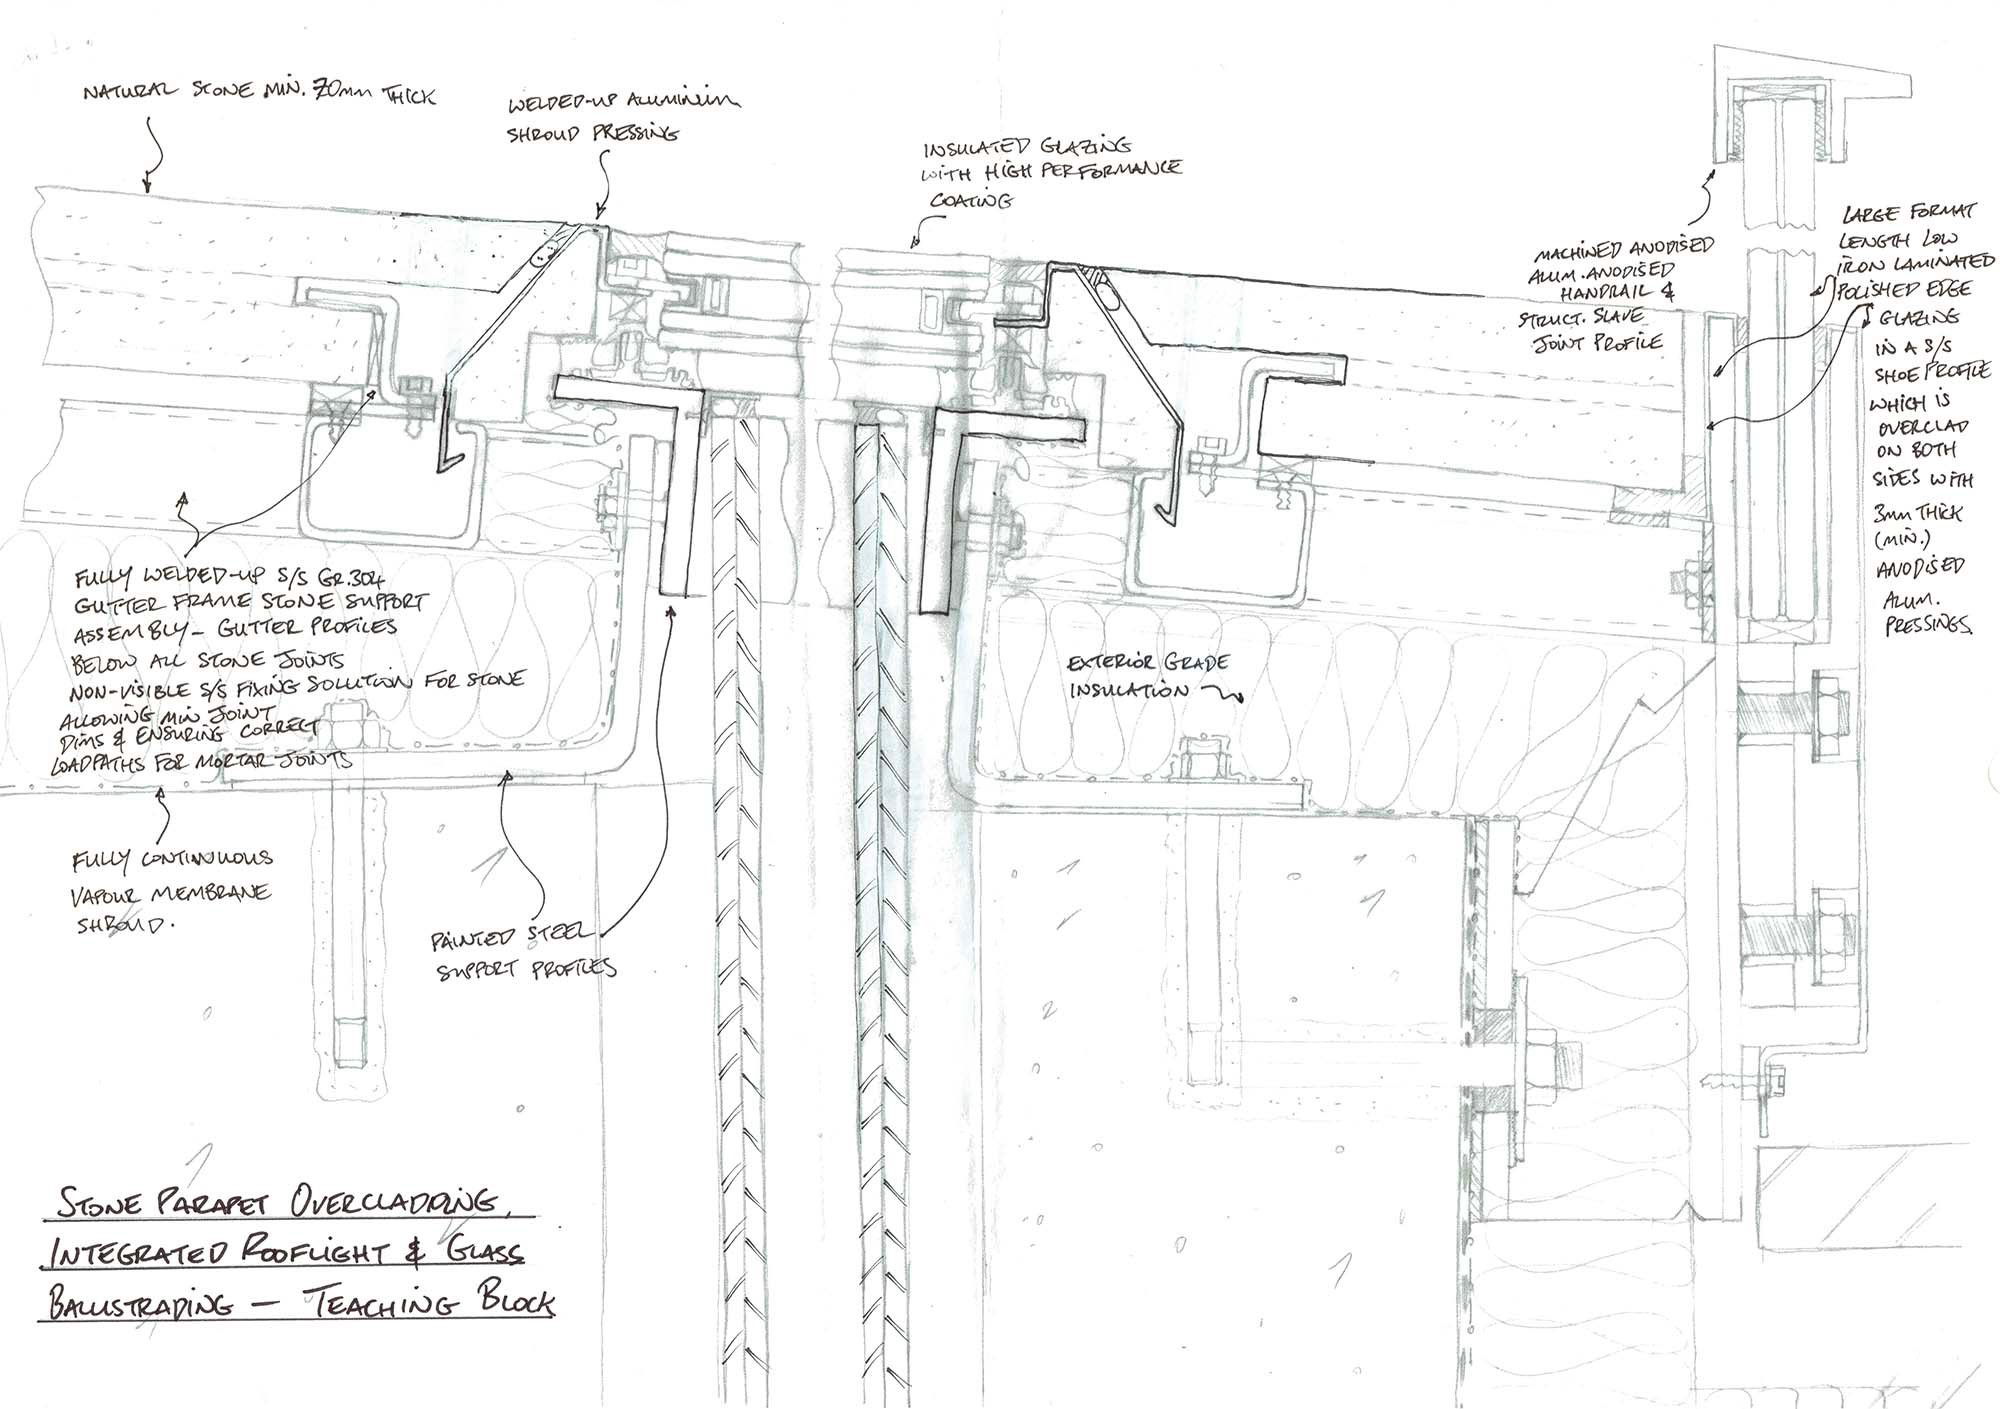 NATURAL STONE MIN. 70mm THICK
WELDED-UP ALUMINIUM
SHROUD PRESSING
INSULATED GLAZING
WITH HIGH PERFORMANCE
COATING
MACHINED ANODISED
ALUM. ANODISED
HANDRAIL &
STRUCT. SLAVE
JOINT PROFILE
LARGE FORMAT
LENGTH LOW
IRON LAMINATED
POLISHED EDGE
GLAZING
IN A S/S
SHOE PROFILE
WHICH IS
OVERCLAD
ON BOTH
SIDES WITH
3mm THICK
(MIN.)
ANODISED
ALUM.
PRESSINGS.
FULLY WELDED-UP S/S GR.304
GUTTER FRAME STONE SUPPORT
ASSEMBLY – GUTTER PROFILES
BELOW ALL STONE JOINTS
NON-VISIBLE S/S FIXING SOLUTION FOR STONE
ALLOWING MIN JOINT
DIMS & ENSURING CORRECT
LOADPATHS FOR MORTAR JOINTS
EXTERIOR GRADE
INSULATION
FULLY CONTINUOUS
VAPOUR MEMBRANE
SHROUD.
PAINTED STEEL
SUPPORT PROFILES
STONE PARAPET OVERCLADDING,
INTEGRATED ROOFLIGHT & GLASS
BALLUSTRADING – TEACHING BLOCK